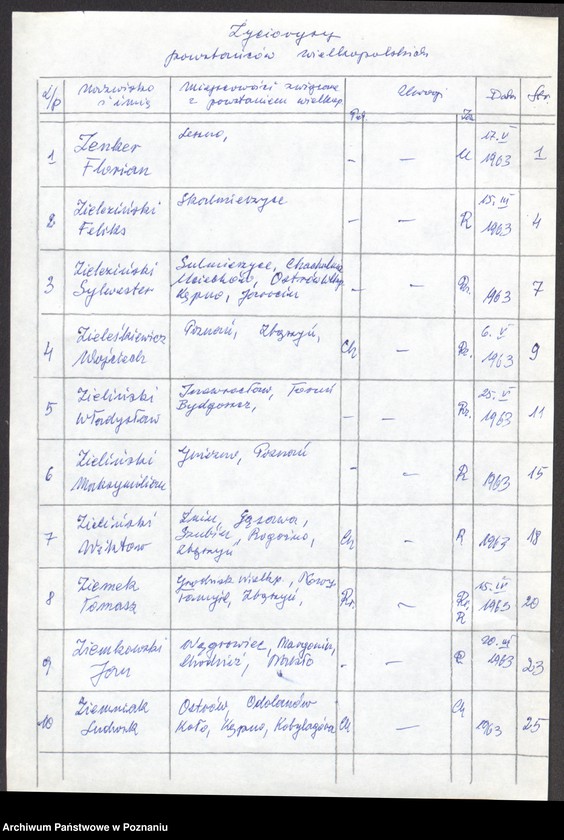 Życiorysy
powstańców wielkopolskich
L/p Nazwisko i imię Miejscowości związane z powstaniem wielkop. Uwagi Data Str.
1 Zenker Florian Leszno, - — U 17.V 1963 1
2 Zieleziński Feliks Skalmierzyce - — R 15.III 1963 4
3 Zieleziński Sylwester Sulmierzyce, Ostrów Wlkp. Kępno, Jarocin - — R. 1963 7
4 Zieleśkiewicz Wojciech Poznań, Zbąszyń, Ch — R. 6.V 1963 9
5 Zieliński Władysław Inowrocław, Toruń Bydgoszcz, - — 25.VI 1963 11
6 Zieliński Maksymilian Gniezno, Poznań - — R 1963 15
7 Zieliński Wiktor Żnin, Gąsawa, Szubin, Rogoźno, Zbąszyń Ch — R 1963 18
8 Ziemek Tomasz Grodzisk Wielkp., Nowy Tomyśl, Zbąszyń, R. — R. R 15.IV 1963 20
9 Ziemkowski Jan Wągrowiec, Margonin, - — 20.III 1963 23
10 Ziemniak Ludwik Ostrów, Odolanów Koło, Kępno, Kobylagóra Ch — Ch 1963 25
Archiwum Państwowe w Poznaniu